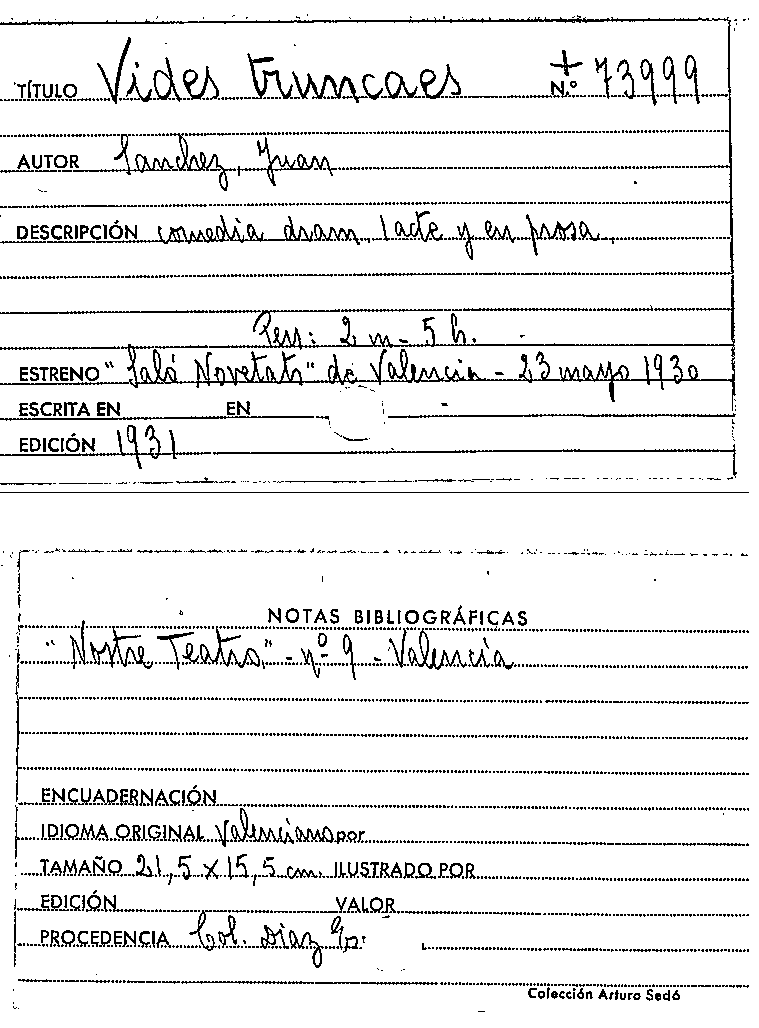 TÍTULO Vides truncaes + N.º 73999
AUTOR Sanchez, Juan
DESCRIPCIÓN comedia dram. 1 acte y en prosa.
Pers: 2 m - 5 h.
ESTRENO "Saló Novetats" de Valencia - 23 mayo 1930
ESCRITA EN EN
EDICIÓN 1931
NOTAS BIBLIOGRÁFICAS
"Nostre Teatro" - nº 9 - Valencia
ENCUADERNACIÓN
IDIOMA ORIGINAL Valenciano por
TAMAÑO 21,5 x 15,5 cm. ILUSTRADO POR
EDICIÓN VALOR
PROCEDENCIA Col. Diaz
Colección Arturo Sedó